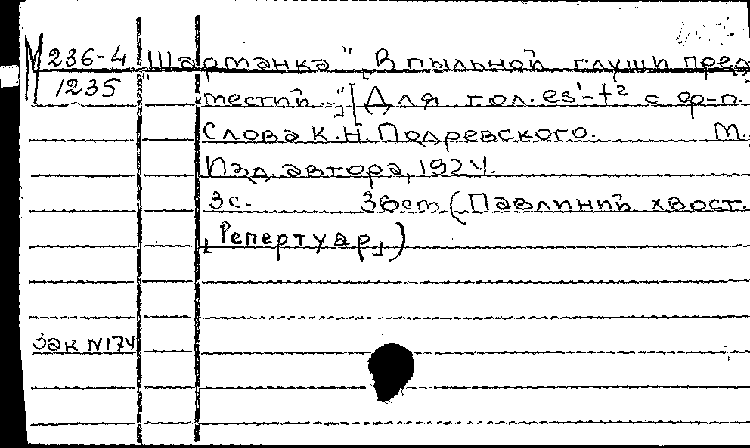 М 236-4
1235
"Шарманка" „В пыльной глуши пред-
местий..." [Для гол. es'-f² с ф-п.
Слова К.Н. Подревского. М.,
Изд. автора, 1924.
3с. Звст (Павлиний хвост.
„Репертуар")
Зак N174